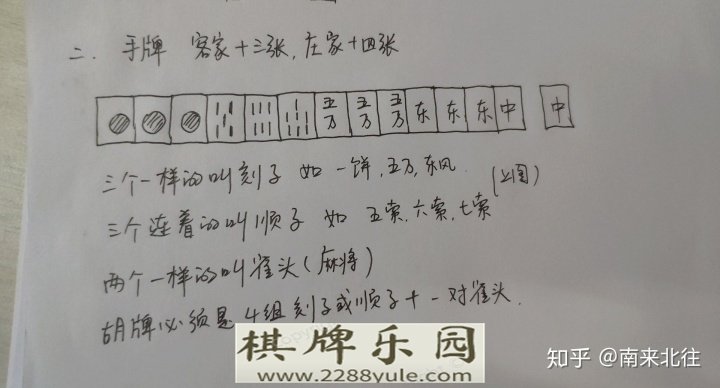 二、手牌 客家十三张,庄家十四张
五万 五万 五万 东 东 东 中 中
三个一样的叫刻子 如 一饼,五万,东风. (上图)
三个连着的叫顺子 如 五索,六索,七索
两个一样的叫雀头(麻将)
胡牌必须是4组刻子或顺子+一对雀头.
棋牌乐园
www.2288yule.com
知乎 @南来北往